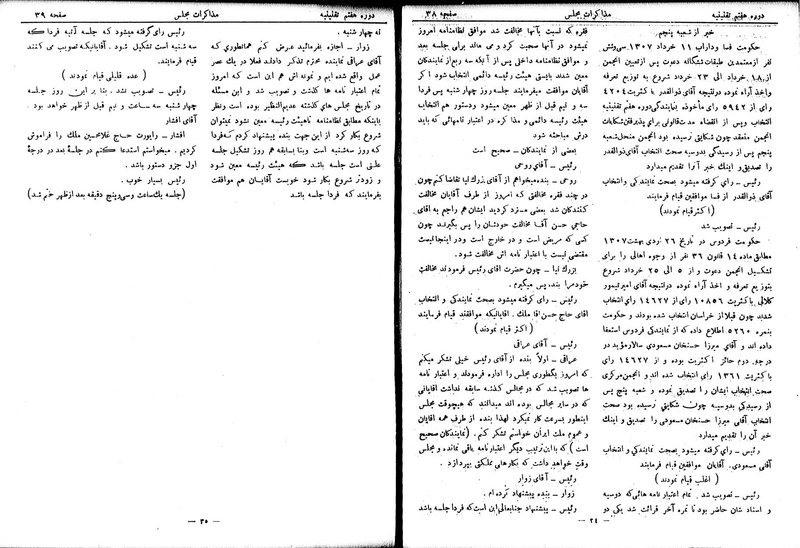 دوره هفتم تقنینیه
مذاکرات مجلس
صفحه ۳۸
خبر از شعبه پنجم
حکومت فسا و داراب ۱۱ خرداد ۱۳۰۷ سی‌وشش
نفر از معتمدین طبقات ششگانه دعوت پس از تعیین انجمن
از ۱۸ خرداد الی ۲۳ خرداد شروع به توزیع تعرفه
واخذ آراء نموده در نتیجه آقای ذوالقدر با کثریت ۴۲۰۴
رای از ۵۹۴۲ رای مأخوذه بنمایندگی دوره هفتم تقنینیه
انتخاب و پس از انقضاء مدت قانونی برای پذیرفتن شکایات
انجمن منعقد چون شکایتی نرسیده بود انجمن منحل شعبه
پنجم پس از رسیدگی بدوسیه صحت انتخاب آقای ذوالقدر
را تصدیق و اینك خبر آنرا تقدیم میدارد
رئیس ــ رای گرفته میشود بصحت نمایندگی و انتخاب
آقای ذوالقدر از فسا موافقین قیام فرمایند
(اکثر قیام نمودند)
رئیس ــ تصویب شد
حکومت فردوس در تاریخ ۲۶ اردی بهشت ۱۳۰۷
مطابق ماده ۱۴ قانون ۳۶ نفر از وجوه اهالی را برای
تشکیل انجمن دعوت و از ۵ الی ۲۵ خرداد شروع
بتوزیع تعرفه و اخذ آراء نموده در نتیجه آقای امیر تیمور
کلالی باکثریت ۱۰۸۵۶ رای از ۱۴۶۲۷ رای انتخاب
شدند چون قبلا از خراسان انتخاب شده بودند و حکومت
بنمره ۵۲۶۰ اطلاع داده که از نمایندگی فردوس استعفا
داده اند و آقای میرزا حسنخان مسعودی سالار مؤید در
درجه دوم حائز اکثریت بوده و از ۱۴۶۲۷ رای
باکثریت ۱۳۶۱ رای انتخاب شده اند و انجمن مرکزی
صحت انتخاب ایشان را تصدیق نموده و شعبه پنج پس
از رسیدگی بدوسیه چون شکایتی نرسیده بود صحت
انتخاب آقای میرزا حسنخان مسعودی را تصدیق و اینك
خبر آن را تقدیم میدارد
رئیس ــ رای گرفته میشود بصحت نمایندگی و انتخاب
آقای مسعودی. آقایان موافقین قیام فرمایند
(اغلب قیام نمودند)
رئیس ــ تصویب شد تمام اعتبار نامه هائی که دوسیه
و اسناد شان حاضر بود تا نمره آخر قرائت شد یکی دو
فقره که نسبت بآنها مخالفت شد موافق نظامنامه امروز
نمیشود در آنها صحبت کرد و می ماند برای جلسه بعد
و موافق نظامنامه داخلی پس از آنکه سه ربع از نمایندگان
معین شدند بایستی هیئت رئیسه دائمی انتخاب شود اگر
آقایان موافقت میفرمایند جلسه روز چهار شنبه پس فردا
سه و نیم قبل از ظهر معین میشود و دستور هم انتخاب
هیئت رئیسه دائمی و مذاکره در اعتبار نامهائی که باید
درش مباحثه شود
بعضی از نمایندگان ــ صحیح است
رئیس ــ آقای روحی
روحی ــ بنده میخواهم از آقای بزرك نیا تقاضا کنم چون
در چند فقره مخالفتی که امروز از طرف آقایان مخالفت
کنندگان شد بعضی مسترد کردید ایشان هم راجع به آقای
حاجی حسن آقا مخالفت خودشان را پس بگیرند چون
کسی که مریض است و در خارج است و در اینجا نیست
مقتضی نیست با اعتبار نامه اش مخالفت شود.
بزرك نیا ــ چون حضرت آقای رئیس فرمودند مخالفت
خودم را بنده پس میگیرم.
رئیس ــ رای گرفته میشود بصحت نمایندگی و انتخاب
آقای حاج حسن آقا ملك. آقایانیکه موافقند قیام فرمایند
(اکثر قیام نمودند)
رئیس ــ آقای عراقی
عراقی ــ اولاً بنده از آقای رئیس خیلی تشکر میکنم
که امروز بکطوری مجلس را اداره فرمودند و اعتبار نامه
ها تصویب شد که در مجالس گذشته سابقه نداشت آقایانی
که در سایر مجالس بوده اند میدانند که هیچوقت مجلس
اینطور بسرعت کار نمیکرد لهذا بنده از طرف همه آقایان
و عموم ملت ایران خواستم تشکر کنم. (نمایندگان صحیح
است) که با این ترتیب دیگر اعتبار نامه باقی نمانده و مجلس
وقت خواهد داشت که بکارهای مملکتی بپردازد.
رئیس ــ آقای زوار
زوار ــ بنده پیشنهاد کرده ام.
رئیس ــ پیشنهاد جنابعالی این است که فردا جلسه باشد
ــ ۲۴ ــ
دوره هفتم تقنینیه
مذاکرات مجلس
صفحه ۳۹
نه چهار شنبه.
زوار ــ اجازه بفرمائید عرض کنم همانطوری که
آقای عراقی نماینده محترم تذکر دادند فعلا در یك عصر
عمل واقع شده ایم و نمونه اش هم این است که امروز
تمام اعتبار نامه ها گذشت و تصویب شد و این مسئله
در تاریخ مجلس های گذشته عدیم‌النظیر بوده است ونظر
باینکه مطابق نظامنامه تا هیئت رئیسه معین نشود نمیتوان
شروع بکار کرد از این جهت بنده پیشنهاد کردم که فردا
که روز سه‌شنبه است وبنا بسابقه هم روز تشکیل جلسه
علنی است جلسه باشد که هیئت رئیسه معین شود
و زودتر شروع بکار شود خوبست آقایان هم موافقت
بفرمایند که فردا جلسه باشد
رئیس رای گرفته میشود که جلسه آتیه فردا که
سه شنبه است تشکیل شود. آقایانیکه تصویب می کنند
قیام فرمایند.
(عده قلیلی قیام نمودند)
رئیس ــ تصویب نشد. بنا بر این روز جلسه
چهار شنبه سه ساعت و نیم قبل از ظهر خواهد بود.
آقای افشار
افشار ــ راپورت حاج غلامحسین ملك را فراموش
کردیم. میخواستم استدعا کنم در جلسهٔ بعد در درجهٔ
اول جزو دستور باشد.
رئیس بسیار خوب.
(جلسه یك ساعت وسی و پنج دقیقه بعد از ظهر ختم شد)
ــ ۲۵ ــ